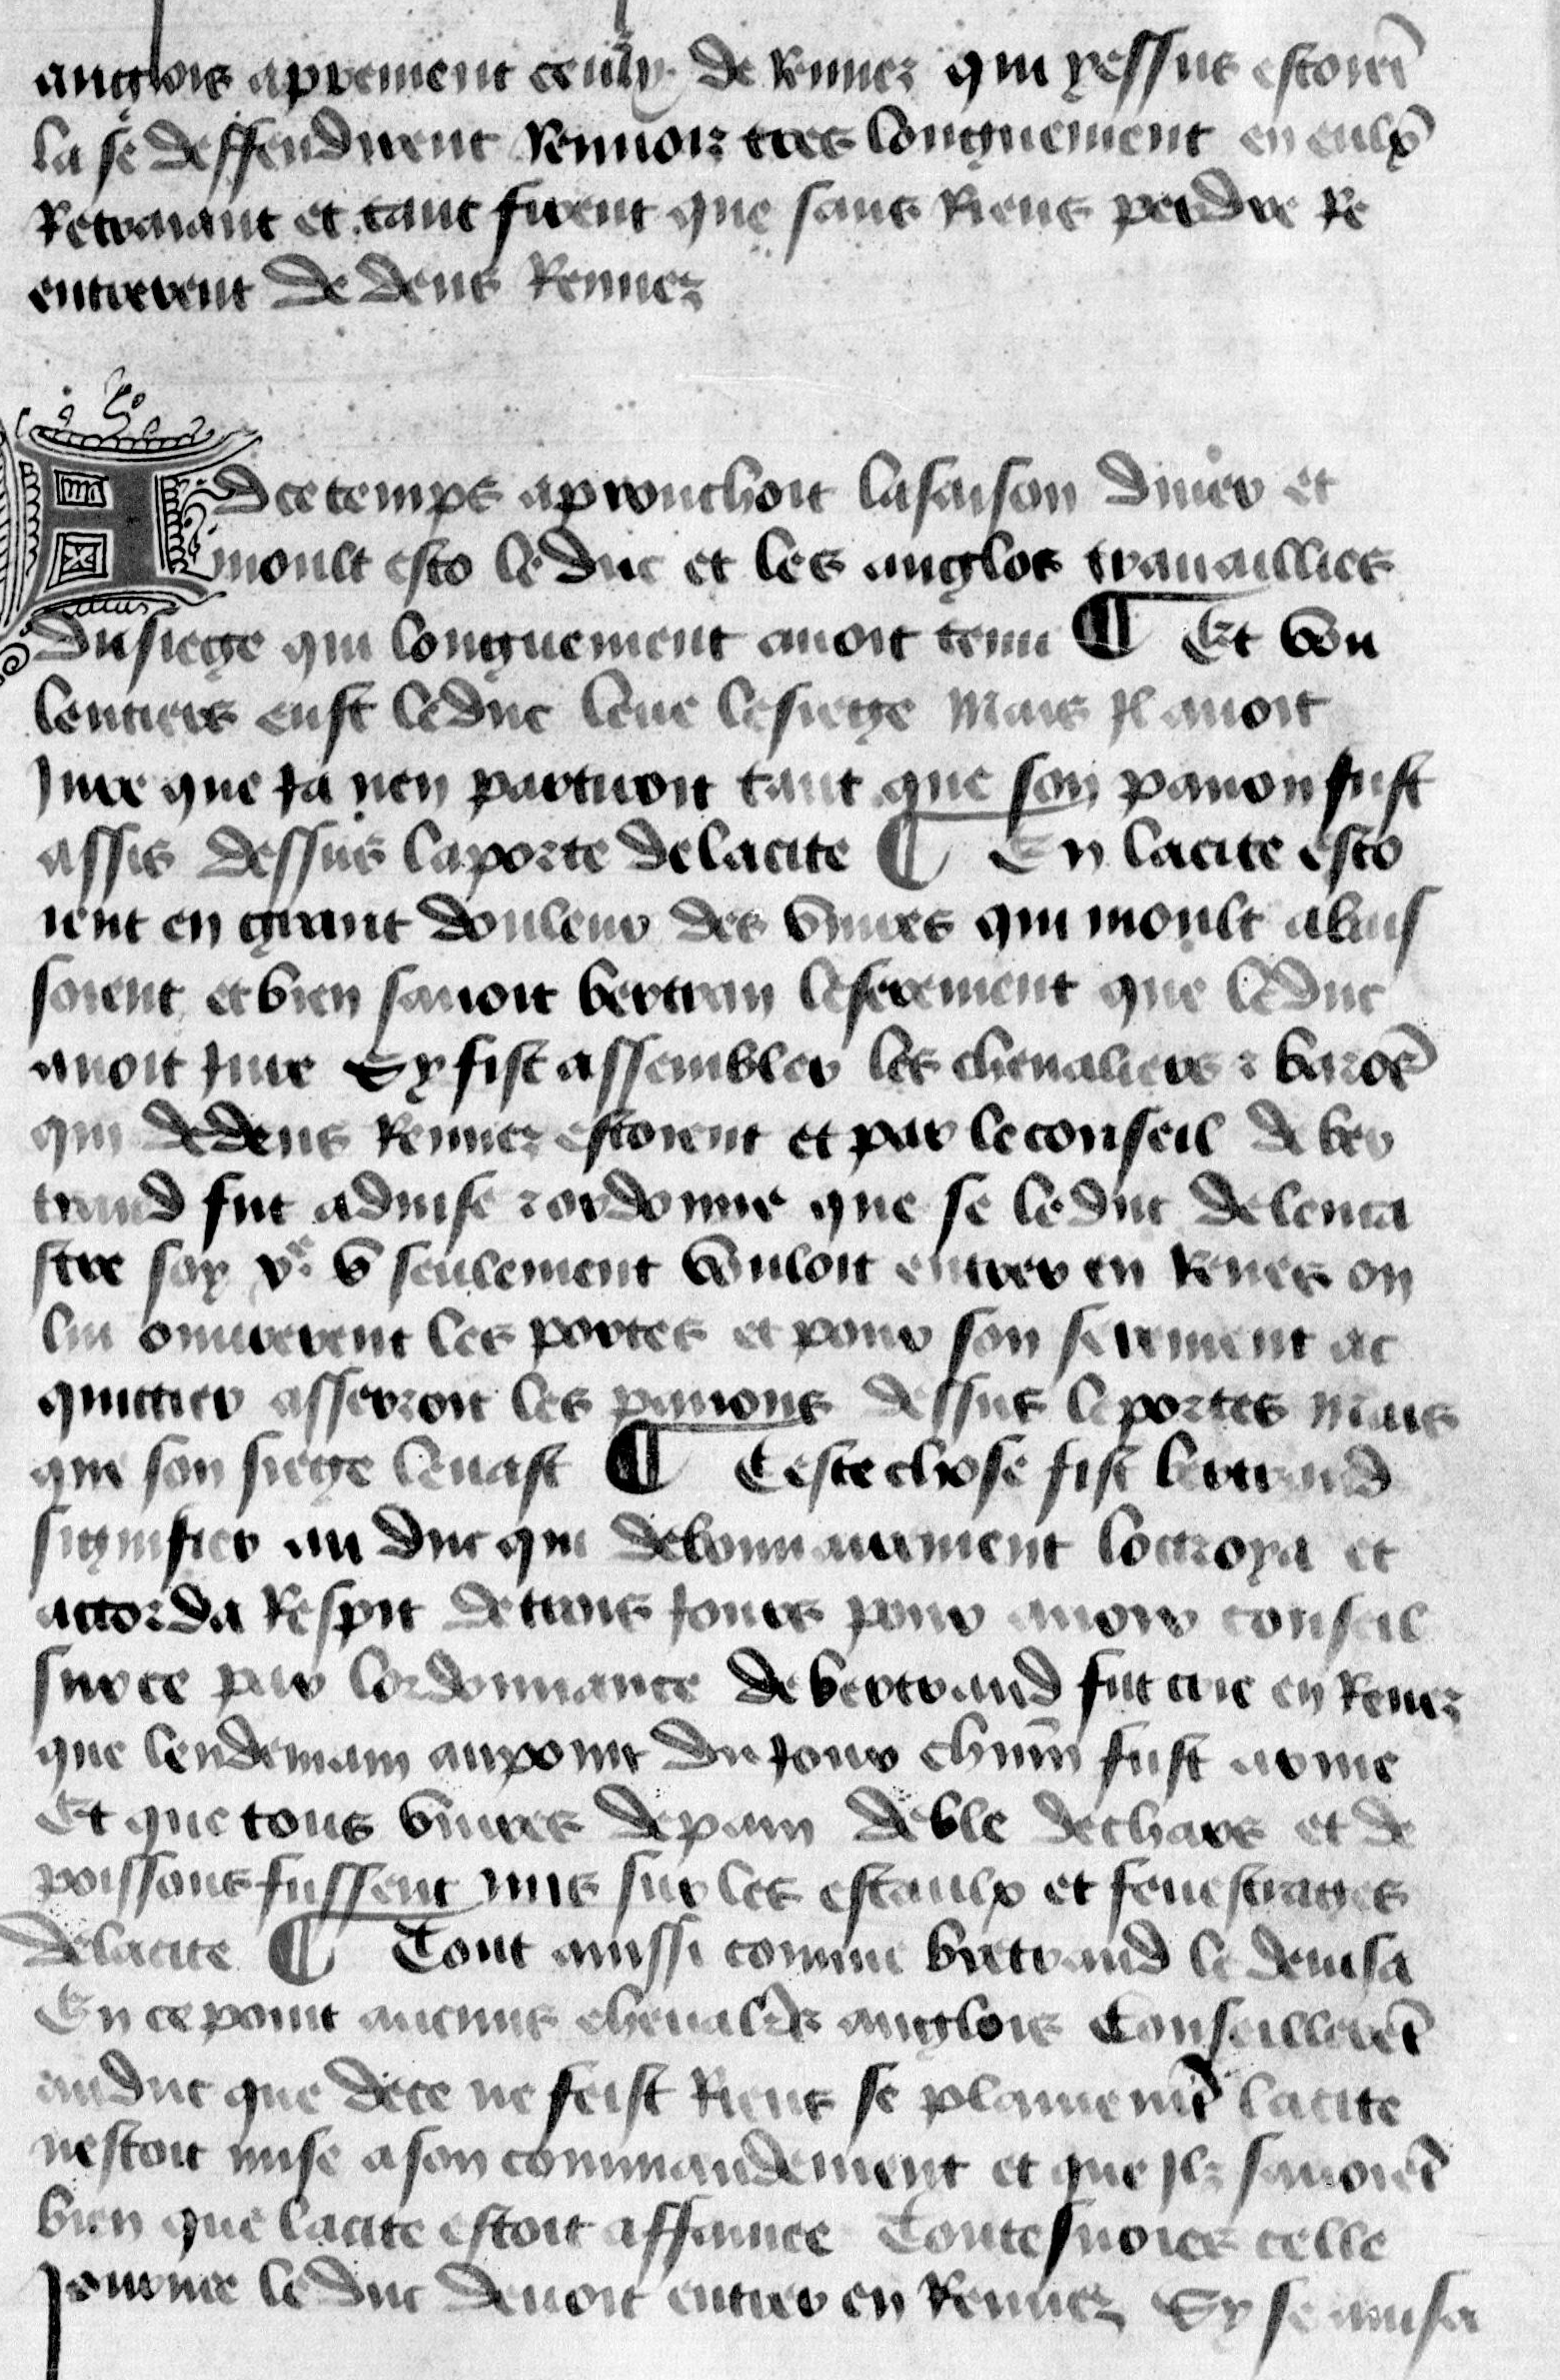 anglois aprement ceulx de Rennez qui yssus estoiēt
la se deffendirent Rennoiz tres longuement en eulx
Retraiant et tant firent que sans Riens perdre Re
entrerent de dens Rennez
A dce temps aprouchoit la saison diuer et
moult esto le duc et les anglos trauaillies
du siege qui longuement auoit tenu ¶ Et vou
lentiers eust le duc leue le siege Mais Jl auoit
Jure que Ja nen partiroit tant que son panon fust
assis dessus la porte de la cite ¶ En la cite esto
ient en grant douleur des viures qui moult abais
soient et bien sauoit bertran le serement que le duc
auoit Jure Sy fist assembler les cheualiers ⁊ barōs
qui dedens Rennez estoient et par le conseil de ber
trand fut aduise ⁊ ordonne que se le duc de lenca
stre soy xe ou seulement vouloit entrer en Renes on
lui ouurerent les portes et pour son serement ac
quitter asserroit les panons dessus le portes Mais
que son siege leuast ¶ Ceste chose fist bertrand
signifier au duc qui debonnairement loctroya et
accorda Respit de trois Jours pour auoir conseil
sur ce par lordonnance de bertrand fut crie en Renez
que lendemain au point du Jour chūn fust arme
Et que tous viures de pain de ble de chars et de
poissons fussent mis sur les estaulx et fenestrages
de la cite ¶ Tout aussi comme bertrand le deuisa
En ce point aucuns cheualrs anglois Conseillerēt
au duc que de ce ne feist Riens se plainemēt la cite
nestoit mise a son commandement et que Jlz sauoiēt
bien que la cite estoit affamee Toutesuoies celle
Journee le duc deuoit entrer en Rennez Sy se auisa